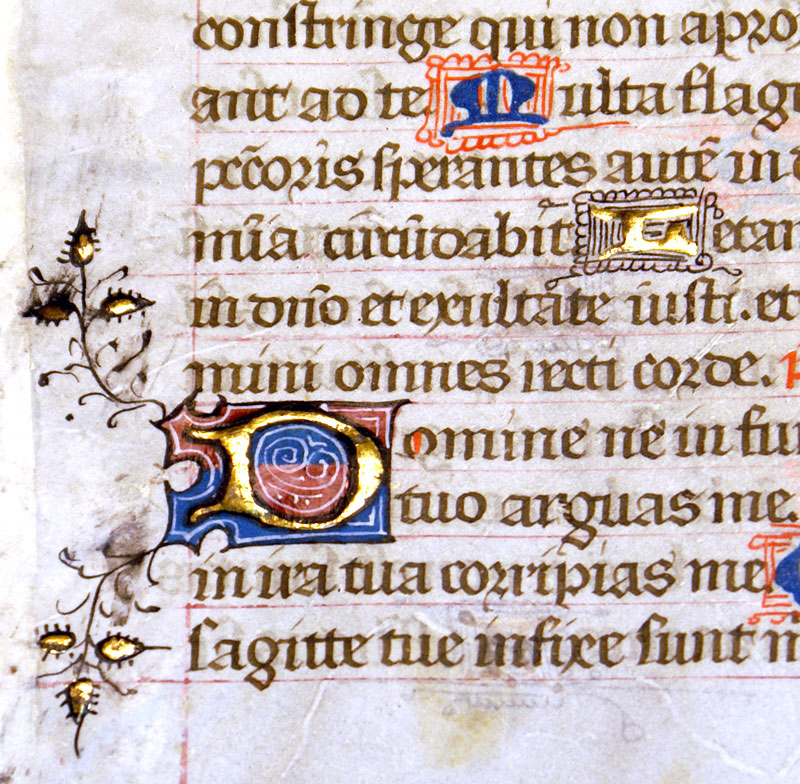 constringe qui non aprox
ant ad te Multa flage
pccōris sperantes autē in d
mīa circūdabit Letam
in dn̄o et exultate iusti. et
mini omnes recti corde.
Domine ne in fur
tuo arguas me.
in ira tua corripias me
sagitte tue infixe sunt m